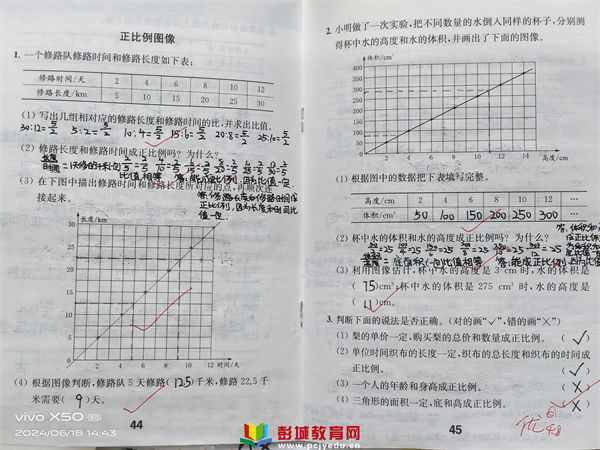 正比例图像
1. 一个修路队修路时间和修路长度如下表：
修路时间/天 2 4 6 8 10 12
修路长度/km 5 10 15 20 25 30
(1) 写出几组相对应的修路长度和修路时间的比，并求出比值。
30:12=5/2 5:2=5/2 10:4=5/2 15:6=5/2 20:8=5/2 25:10=5/2
(2) 修路长度和修路时间成正比例吗？为什么？
(3) 在下图中描出修路时间和修路长度所对应的点，再顺次连
接起来。
长度/km
30
25
20
15
10
5
0 2 4 6 8 10 12 时间/天
(4) 根据图像判断，修路队 5 天修路(12.5)千米，修路 22.5 千
米需要(9)天。
44
2. 小明做了一次实验，把不同数量的水倒入同样的杯子，分别测
得杯中水的高度和水的体积，并画出了下面的图像。
体积/cm³
400
350
300
250
200
150
100
50
0 2 4 6 8 10 12 14 高度/cm
(1) 根据图中的数据把下表填写完整。
高度/cm 2 4 6 8 10 12 …
体积/cm³ 50 100 150 200 250 300 …
(2) 杯中水的体积和水的高度成正比例吗？为什么？
(3) 利用图像估计，杯中水的高度是 3 cm 时，水的体积是
(75)cm³；杯中水的体积是 275 cm³ 时，水的高度是
(11)cm。
3. 判断下面的说法是否正确。(对的画“✓”，错的画“✕”)
(1) 梨的单价一定，购买梨的总价和数量成正比例。 (✓)
(2) 单位时间织布的长度一定，织布的总长度和织布的时间成
正比例。 (✓)
(3) 一个人的年龄和身高成正比例。 (✕)
(4) 三角形的面积一定，底和高成正比例。 (✕)
45
优
vivo X50 5G
2024/06/18 14:43
彭城教育网
www.pcjyedu.cn